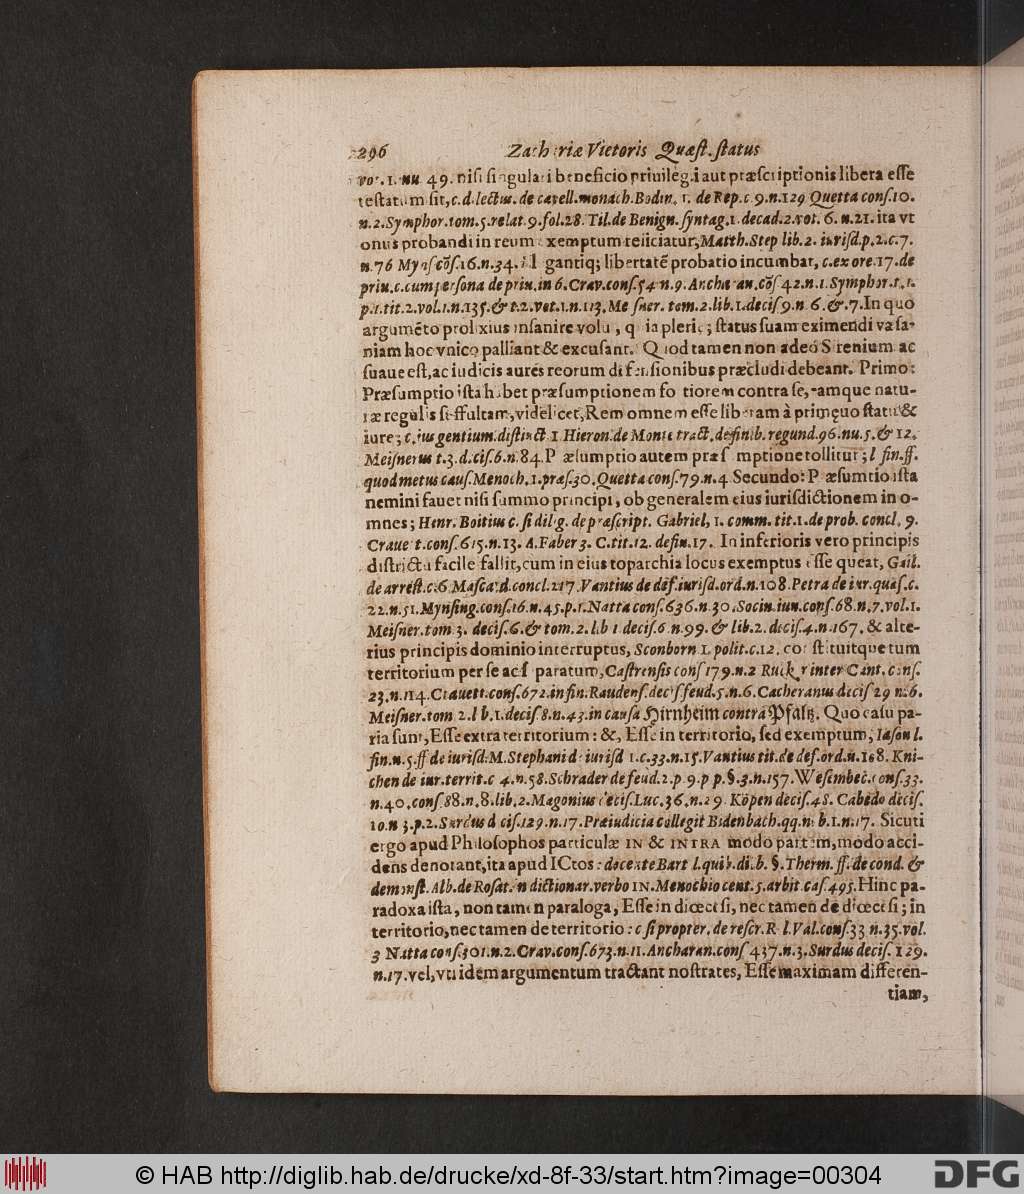 296 Zachariæ Vietoris Quæst. status
vot. 1. nu. 49. nisi singulari beneficio privilegii aut præscriptionis libera esse
testatum sit, c. d. lectus. de capell. monach. Bodin. 1. de Rep. c. 9. n. 129 Quetta cons. 10.
n. 2. Symphor. tom. 5. relat. 9. fol. 28. Til. de Benign. syntag. 1. decad. 2. vot. 6. n. 21. ita vt
onus probandi in reum exemptum reiiciatur, Matth. Step lib. 2. iurisd. p. 2. c. 7.
n. 76 Myns cõs. 16. n. 34. allegantiq; libertatẽ probatio incumbat, c. ex ore. 17. de
priu. c. cum persona de priu. in 6. Crav. cons. 54. n. 9. Ancharan. cõs 42. n. 1. Symphor. t. 1.
p. 1. tit. 2. vol. 1. n. 135. & t. 2. vot. 1. n. 113. Meisner. tom. 2. lib. 1. decis 9. n. 6. &. 7. In quo
argumẽto prolixius insanire volui, quia pleriq; status suam eximendi vasa-
niam hoc vnico palliant & excusant. Quod tamen non adeò Sirenium ac
suave est, ac iudicis aures reorum defensionibus præcludi debeant. Primo:
Præsumptio ista habet præsumptionem fortiorem contra se, eamque natu-
ræ regulis suffultam, videlicet, Rem omnem esse liberam à primęuo statu &
iure; c. ius gentium. distinct. 1 Hieron. de Monte tract. de finib. regund. 96. nu. 5. & 12.
Meisnerus t. 3. decis. 6. n. 84. Præsumptio autem præsumptione tollitur; l fin. ff.
quod metus caus. Menoch. 1. præs. 30. Quetta cons. 79. n. 4 Secundo: Præsumtio ista
nemini favet nisi summo principi, ob generalem eius iurisdictionem in o-
mnes; Henr. Boitius c. si dilig. de præscript. Gabriel, 1. comm. tit. 1. de prob. concl. 9.
Cravett. cons. 615. n. 13. A. Faber 3. C. tit. 12. defin. 17. In inferioris vero principis
districtu facile fallit, cum in eius toparchia locus exemptus esse queat, Gail.
de arrest. c. 6 Mascard. concl. 217. Vantius de def. iurisd. ord. n. 108. Petra de iur. quæs. c.
22. n. 51. Mynsing. cons. 16. n. 45. p. 1. Natta cons. 636. n. 30. Socin. iun. cons. 68. n. 7. vol. 1.
Meisner. tom 3. decis. 6. & tom. 2. lib 1 decis. 6 n. 99. & lib. 2. decis. 4. n. 167. & alte-
rius principis dominio interruptus, Sconborn 1. polit. c. 12. constituitque tum
territorium per se ac separatum, Castrensis cons 179. n. 2 Rucker inter Cant. cons.
23. n. 114. Cravett. cons. 672. in fin. Raudens. decis feud. 5. n. 6. Cacheranus decis 29 n. 6.
Meisner. tom 2. lib. 1. decis. 8. n. 43. in causa Hirnheim contra Pfaltz. Quo casu pa-
ria sunt, Esse extra territorium: &, Esse in territorio, sed exemptum; Iason l.
fin. n. 5. ff de iurisd. M. Stephani de iurisd 1. c. 33. n. 15. Vantius tit. de def. ord. n. 108. Kni-
chen de iur. territ. c 4. n. 58. Schrader de feud. 2. p. 9. p p. §. 3. n. 157. Wesembec. cons. 33.
n. 40. cons. 88. n. 8. lib. 2. Magonius decis. Luc. 36. n. 29. Köpen decis. 48. Cabedo decis.
10. n 3. p. 2. Surdus decis. 129. n. 17. Præiudicia collegit Bidenbach. qq. nob. 1. n. 17. Sicuti
ergo apud Philosophos particulæ IN & INTRA modo partem, modo acci-
dens denotant, ita apud ICtos: docente Bart l. quib. dieb. §. Therm. ff. de cond. &
demonst. Alb. de Rosat. in dictionar. verbo IN. Menochio cent. 5. arbit. cas 495. Hinc pa-
radoxa ista, non tamen paraloga, Esse in diœcesi, nec tamen de diœcesi; in
territorio, nec tamen de territorio: c si propter. de rescr. R l. Val. cons. 33 n. 35. vol.
3 Natta cons. 301. n. 2. Crav. cons. 673. n. 11. Ancharan. cons 437. n. 3. Surdus decis. 129.
n. 17. vel, vti idem argumentum tractant nostrates, Esse maximam differen-
tiam,
© HAB http://diglib.hab.de/drucke/xd-8f-33/start.htm?image=00304
DFG